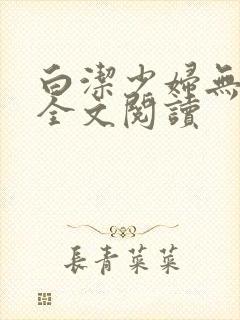 白潔少婦無
全文閱讀
長青菜菜